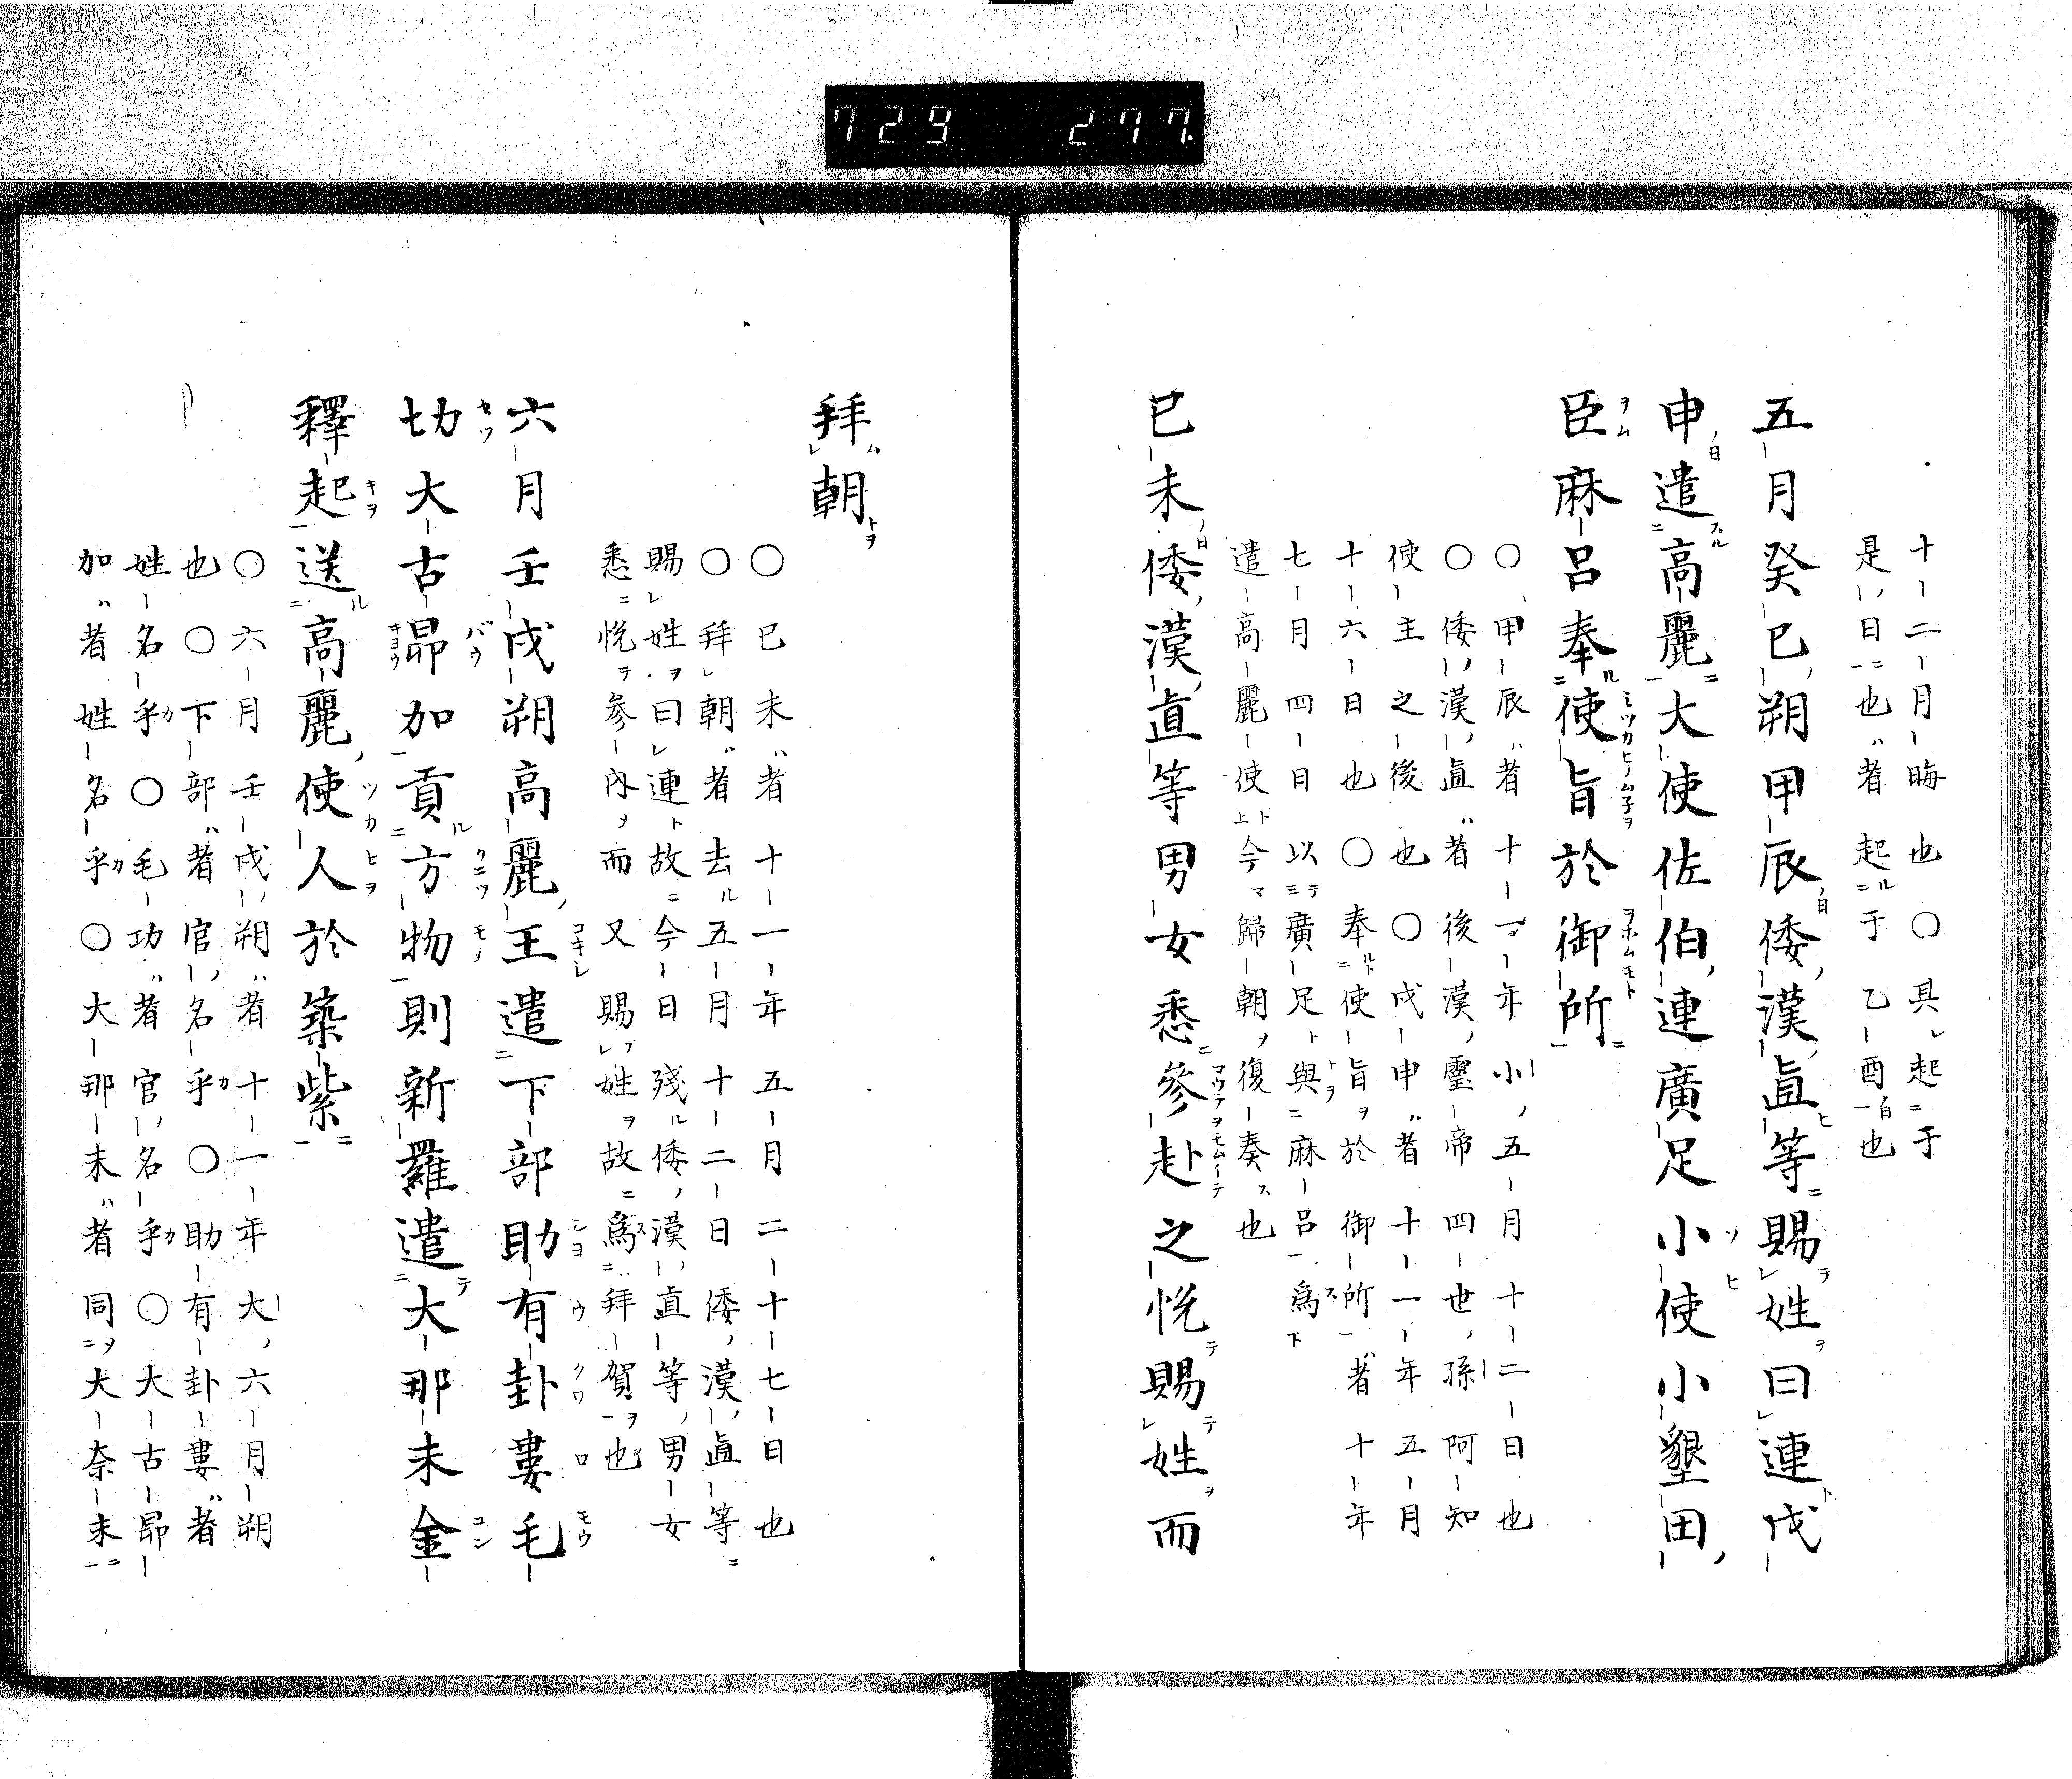 729 277
十二月晦也〇具起于
是日也者起于乙酉也
五月癸巳朔甲辰倭漢直等賜姓曰連戊
申遣高麗大使佐伯連廣足小使小墾田
臣麻呂奉使旨於御所
〇甲辰者十一年小五月十二日也
〇倭漢直者後漢靈帝四世孫阿知
使主之後也〇戊申者十一年五月
十六日也〇奉使旨於御所者十年
七月四日以廣足與麻呂為
遣高麗使今歸朝復奏也
已未倭漢直等男女悉參赴之悅賜姓而
拜朝
〇已未者十一年五月二十七日也
〇拜朝者去五月十二日倭漢直等
賜姓曰連故今日殘倭漢直等男女
悉悅參內而又賜姓故為拜賀也
六月壬戌朔高麗王遣下部助有卦婁毛
切大古昴加貢方物則新羅遣大那末金
釋起送高麗使人於築紫
〇六月壬戌朔者十一年大六月朔
也〇下部者官名乎〇助有卦婁者
姓名乎〇毛切者官名乎〇大古昴
加者姓名乎〇大那末者同大奈末